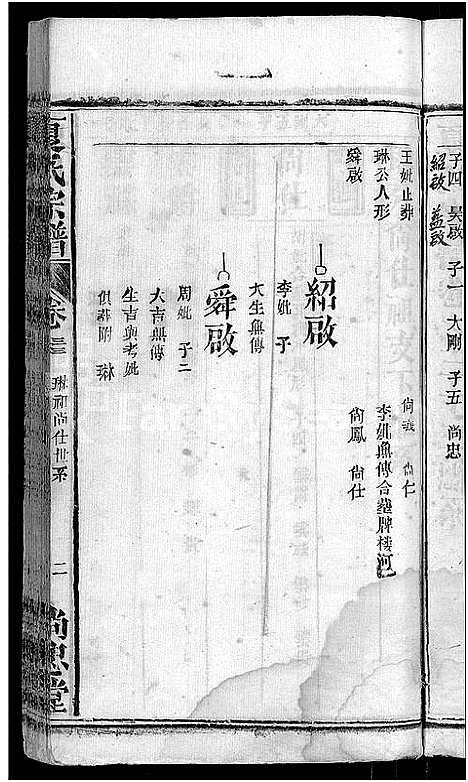 子四 吴啟 子一 大剛 子五 尚忠
紹啟 益啟
王妣止葬 尚義 尚仁
琳公人形 李妣無傳合葬牌樓河
舜啟 尚鳳 尚仕
紹啟
李妣 子
大生無傳
舜啟
周妣 子二
大吉無傳
生吉與考妣
俱葬附 琳
夏氏宗譜
卷三 琳初尚仕世系
二
尚忠堂